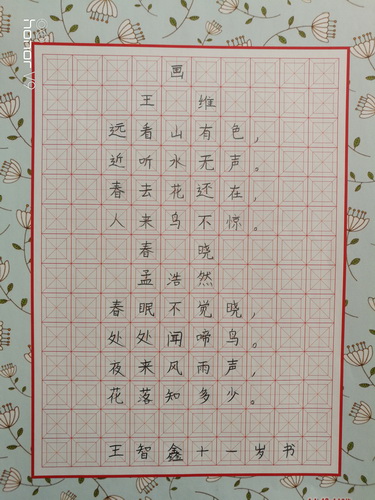 画
王维
远看山有色，
近听水无声。
春去花还在，
人来鸟不惊。
春晓
孟浩然
春眠不觉晓，
处处闻啼鸟。
夜来风雨声，
花落知多少。
王智鑫十一岁书
honor V9